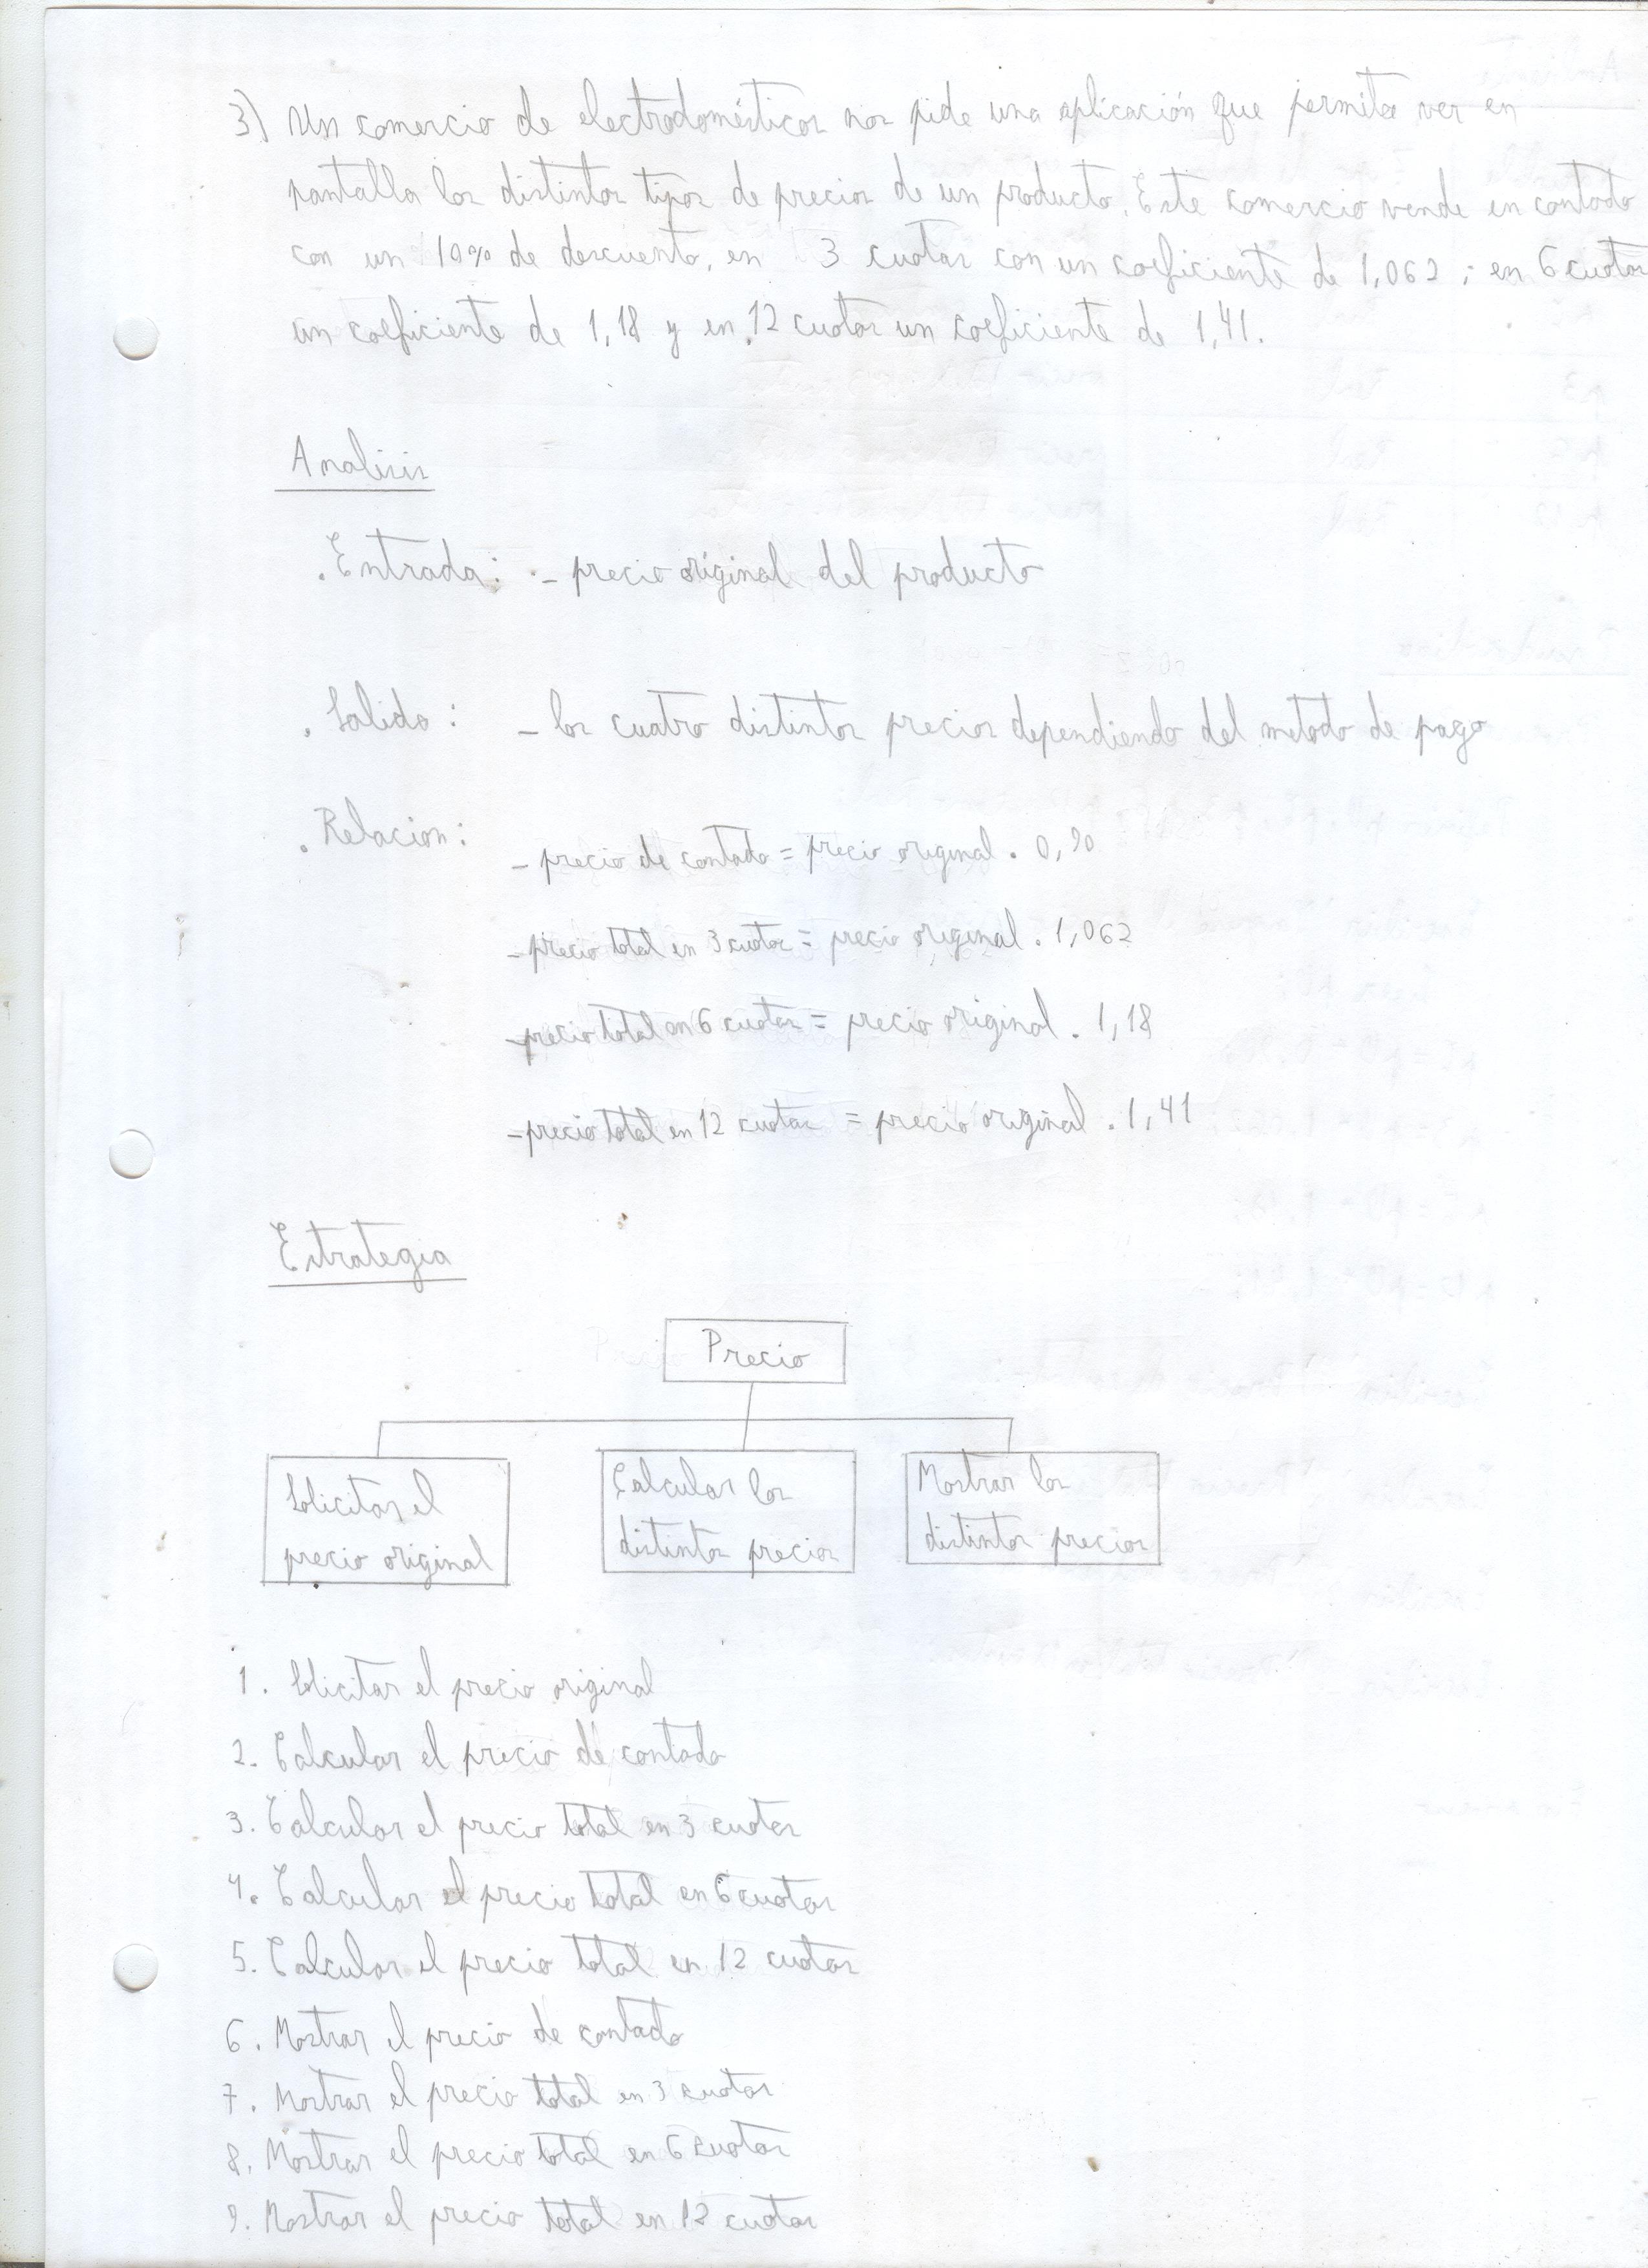 3) Un comercio de electrodomésticos nos pide una aplicación que permita ver en
pantalla los distintos tipos de precios de un producto. Este comercio vende en contado
con un 10% de descuento, en 3 cuotas con un coeficiente de 1,062; en 6 cuotas
un coeficiente de 1,18 y en 12 cuotas un coeficiente de 1,41.
Analisis
. Entrada: - precio original del producto
. Salida: - los cuatro distintos precios dependiendo del metodo de pago
. Relacion:
- precio de contado = precio original . 0,90
- precio total en 3 cuotas = precio original . 1,062
- precio total en 6 cuotas = precio original . 1,18
- precio total en 12 cuotas = precio original . 1,41
Estrategia
Precio
Solicitar el
precio original
Calcular los
distintos precios
Mostrar los
distintos precios
1. Solicitar el precio original
2. Calcular el precio de contado
3. Calcular el precio total en 3 cuotas
4. Calcular el precio total en 6 cuotas
5. Calcular el precio total en 12 cuotas
6. Mostrar el precio de contado
7. Mostrar el precio total en 3 cuotas
8. Mostrar el precio total en 6 cuotas
9. Mostrar el precio total en 12 cuotas